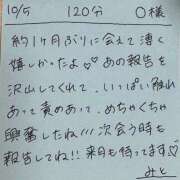 10/5 120分 O様
約1ヶ月ぶりに会えて凄く
嬉しかったよ♡♡あの報告を
沢山してくれて、いっぱい触れ
あって責めあって、めちゃくちゃ
興奮したね!!!次会う時も
報告してね!!来月も待ってます♡
みと